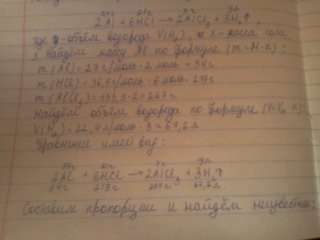 2Al + 6HCl → 2AlCl₃ + 3H₂↑,
где y-объём водорода V(H₂), x-масса соли
Найдём массу Al по формуле (m=M·n):
m(Al)=27г/моль·2моль=54г
m(HCl)=36,5г/моль·6моль=219г
m(AlCl₃)=133,5·2=267г
Найдём объём водорода по формуле
V(H₂)=22,4л/моль·3=67,2л
Уравнение имеет вид:
2Al + 6HCl → 2AlCl₃ + 3H₂↑
54г 219г 267г 67,2л
Составим пропорции и найдём неизвестные: